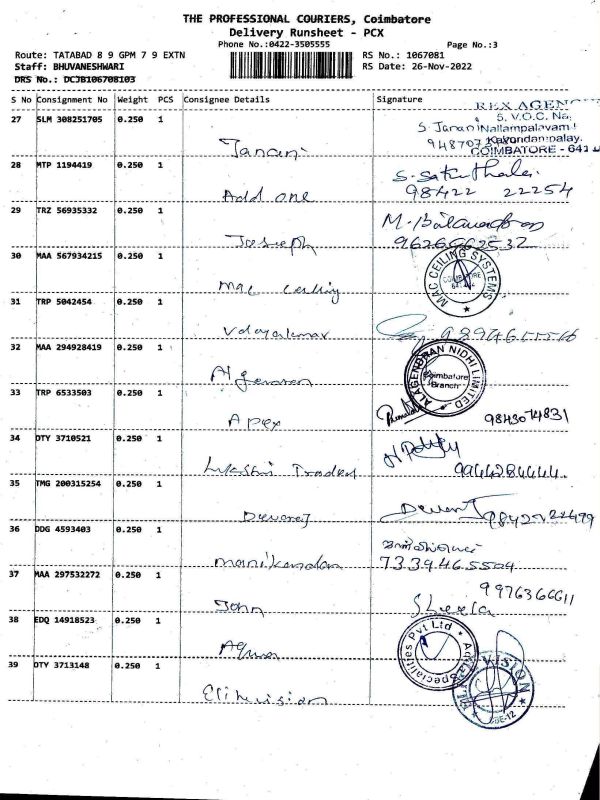 THE PROFESSIONAL COURIERS, Coimbatore
Delivery Runsheet - PCX
Phone No.:0422-3505555
Page No.:3
Route: TATABAD 8 9 GPM 7 9 EXTN
RS No.: 1067081
Staff: BHUVANESHWARI
RS Date: 26-Nov-2022
DRS No.: DCJB106708103
S No Consignment No Weight PCS Consignee Details Signature
27 SLM 308251705 0.250 1 Janani S. Janani
REX AGENC
5, V.O.C. Na
Nallampalayam
Kavundanpalay.
COIMBATORE - 641
28 MTP 1194419 0.250 1 Add one
98422 22254
29 TRZ 56935332 0.250 1 Joseph
9626662532
30 MAA 567934215 0.250 1 Mac ceiling
MAC CEILING SYSTEMS
COIMBATORE
31 TRP 5042454 0.250 1 Udayakumar
32 MAA 294928419 0.250 1
ALAGENDRAN NIDHI LIMITED
Coimbatore
Branch
33 TRP 6533503 0.250 1 Apex
9843074831
34 OTY 3710521 0.250 1 Traders
9944284444
35 TMG 200315254 0.250 1 Devaraj
36 DDG 4593403 0.250 1 manikandan
7339465504
37 MAA 297532272 0.250 1 John
9976366611
Sheela
38 EDQ 14918523 0.250 1 Aqua
Specialities Pvt Ltd
39 OTY 3713148 0.250 1
VISION
CBE-12